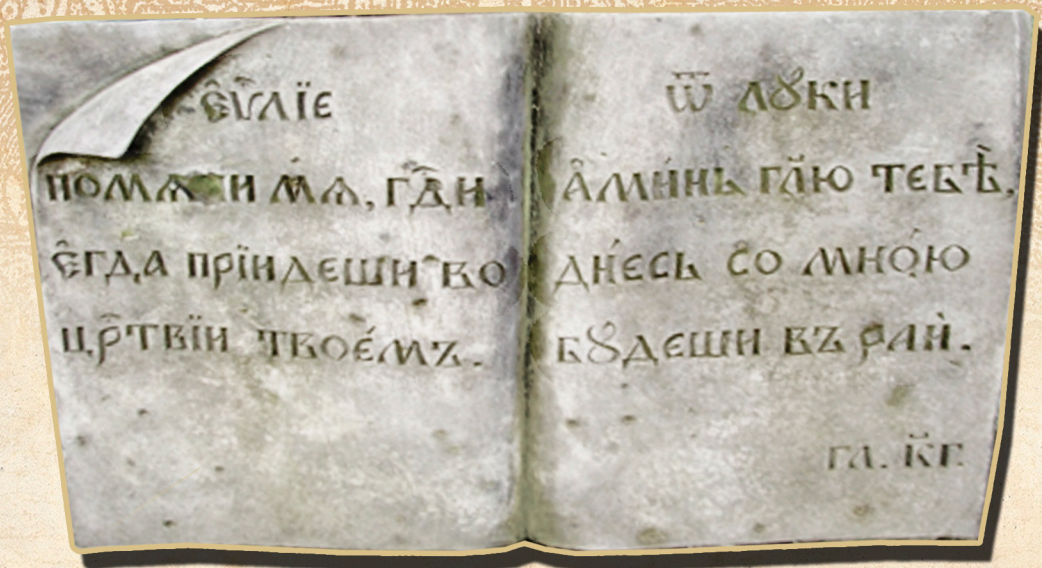 Є҆ѵ҃лїе
помѧни мѧ̀, гдⷭ҇и,
є҆гда̀ прїидеши во
црⷭ҇твїи твое́мъ.
ѿ лꙋки
а҆ми́нь гл҃ю тебѣ̀,
дне́сь со мно́ю
бꙋдеши въ раѝ.
гл. к҃г.